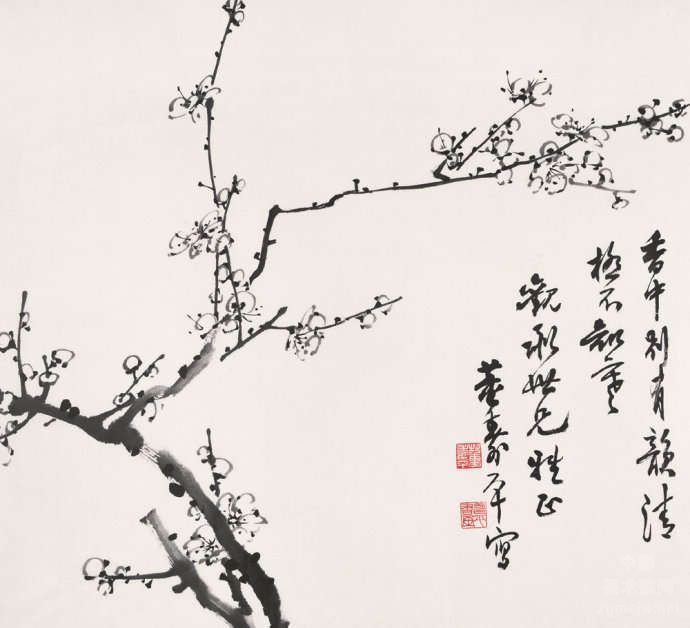 香中别有韵清
极不知寒
观承世兄雅正
董寿平写